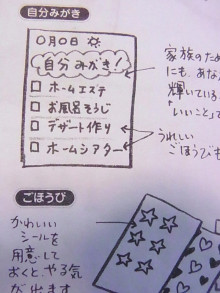 自分みがき
〇月〇日
自分みがき!
ホームエステ
お風呂そうじ
デザート作り
ホームシアター
家族のため
にも、あな
輝いている
「いいこと」
うれしい
ごほうびも
ごほうび
かわいい
シールを
用意して
おくと、やる気
が出ます